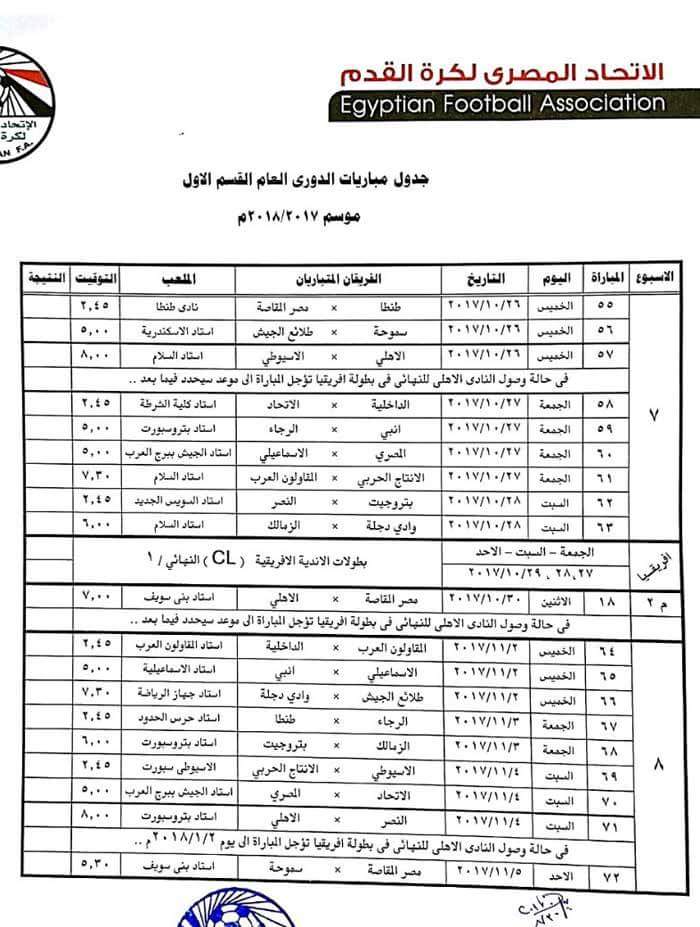 الاتحاد المصرى لكرة القدم
Egyptian Football Association
الإتحاد
لكرة
AN F.A.
جدول مباريات الدورى العام القسم الاول
موسم ٢٠١٨/٢٠١٧م
الاسبوع المباراة اليوم التاريخ الفريقان المتباريان الملعب التوقيت النتيجة
٧
٥٥ الخميس ٢٠١٧/١٠/٢٦ طنطا × مصر المقاصة نادى طنطا ٢,٤٥
٥٦ الخميس ٢٠١٧/١٠/٢٦ سموحة × طلائع الجيش استاد الاسكندرية ٥,٠٠
٥٧ الخميس ٢٠١٧/١٠/٢٦ الاهلي × الاسيوطي استاد السلام ٨,٠٠
فى حالة وصول النادى الاهلى للنهائى فى بطولة افريقيا تؤجل المباراة الى موعد سيحدد فيما بعد ..
٥٨ الجمعة ٢٠١٧/١٠/٢٧ الداخلية × الاتحاد استاد كلية الشرطة ٢,٤٥
٥٩ الجمعة ٢٠١٧/١٠/٢٧ انبي × الرجاء استاد بتروسبورت ٥,٠٠
٦٠ الجمعة ٢٠١٧/١٠/٢٧ المصري × الاسماعيلي استاد الجيش ببرج العرب ٥,٠٠
٦١ الجمعة ٢٠١٧/١٠/٢٧ الانتاج الحربي × المقاولون العرب استاد السلام ٧,٣٠
٦٢ السبت ٢٠١٧/١٠/٢٨ بتروجيت × النصر استاد السويس الجديد ٢,٤٥
٦٣ السبت ٢٠١٧/١٠/٢٨ وادي دجلة × الزمالك استاد السلام ٦,٠٠
افريقيا الجمعة – السبت – الاحد بطولات الاندية الافريقية ( CL ) النهائي / ١
٢٨,٢٧ , ٢٠١٧/١٠/٢٩
م ٢ ١٨ الاثنين ٢٠١٧/١٠/٣٠ مصر المقاصة × الاهلي استاد بنى سويف ٧,٠٠
فى حالة وصول النادى الاهلى للنهائى فى بطولة افريقيا تؤجل المباراة الى موعد سيحدد فيما بعد ..
٨
٦٤ الخميس ٢٠١٧/١١/٢ المقاولون العرب × الداخلية استاد المقاولون العرب ٢,٤٥
٦٥ الخميس ٢٠١٧/١١/٢ الاسماعيلي × انبي استاد الاسماعيلية ٥,٠٠
٦٦ الخميس ٢٠١٧/١١/٢ طلائع الجيش × وادي دجلة استاد جهاز الرياضة ٧,٣٠
٦٧ الجمعة ٢٠١٧/١١/٣ الرجاء × طنطا استاد حرس الحدود ٢,٤٥
٦٨ الجمعة ٢٠١٧/١١/٣ الزمالك × بتروجيت استاد بتروسبورت ٦,٠٠
٦٩ السبت ٢٠١٧/١١/٤ الاسيوطي × الانتاج الحربي الاسيوطى سبورت ٢,٤٥
٧٠ السبت ٢٠١٧/١١/٤ الاتحاد × المصري استاد الجيش ببرج العرب ٥,٠٠
٧١ السبت ٢٠١٧/١١/٤ النصر × الاهلي استاد بتروسبورت ٨,٠٠
فى حالة وصول النادى الاهلى للنهائى فى بطولة افريقيا تؤجل المباراة الى يوم ٢٠١٨/١/٢م ..
٧٢ الاحد ٢٠١٧/١١/٥ مصر المقاصة × سموحة استاد بنى سويف ٥,٣٠